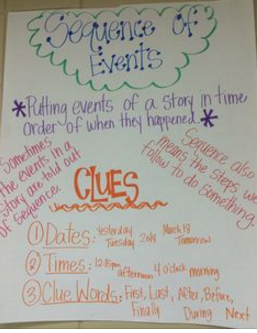 Sequence Of
Events
*Putting events of a story in time
order of when they happened.*
Sometimes
the events in a
story are told out
of sequence.
Sequence also
means the steps we
follow to do something.
CLUES
① Dates: Yesterday March 18
Tuesday 2nly Tomorrow
② Times: 12:15pm afternoon 4 o'clock morning
③ Clue Words: First, Last, After, Before,
Finally During Next